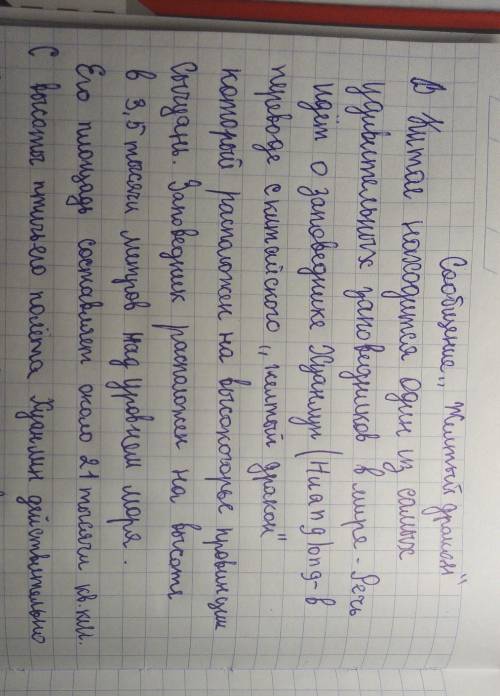 Сообщение „ Желтый дракон"
В Китае находится один из самых
удивительных заповедников в мире - Речь
идёт о заповеднике Хуанлун (Huanglong - в
переводе с китайского „желтый дракон"
который расположен на высокогорье провинции
Сычуань. Заповедник расположен на высоте
в 3,5 тысячи метров над уровнем моря.
Его площадь составляет около 21 тысячи кв.км.
С высоты птичьего полёта Хуанлун действительно